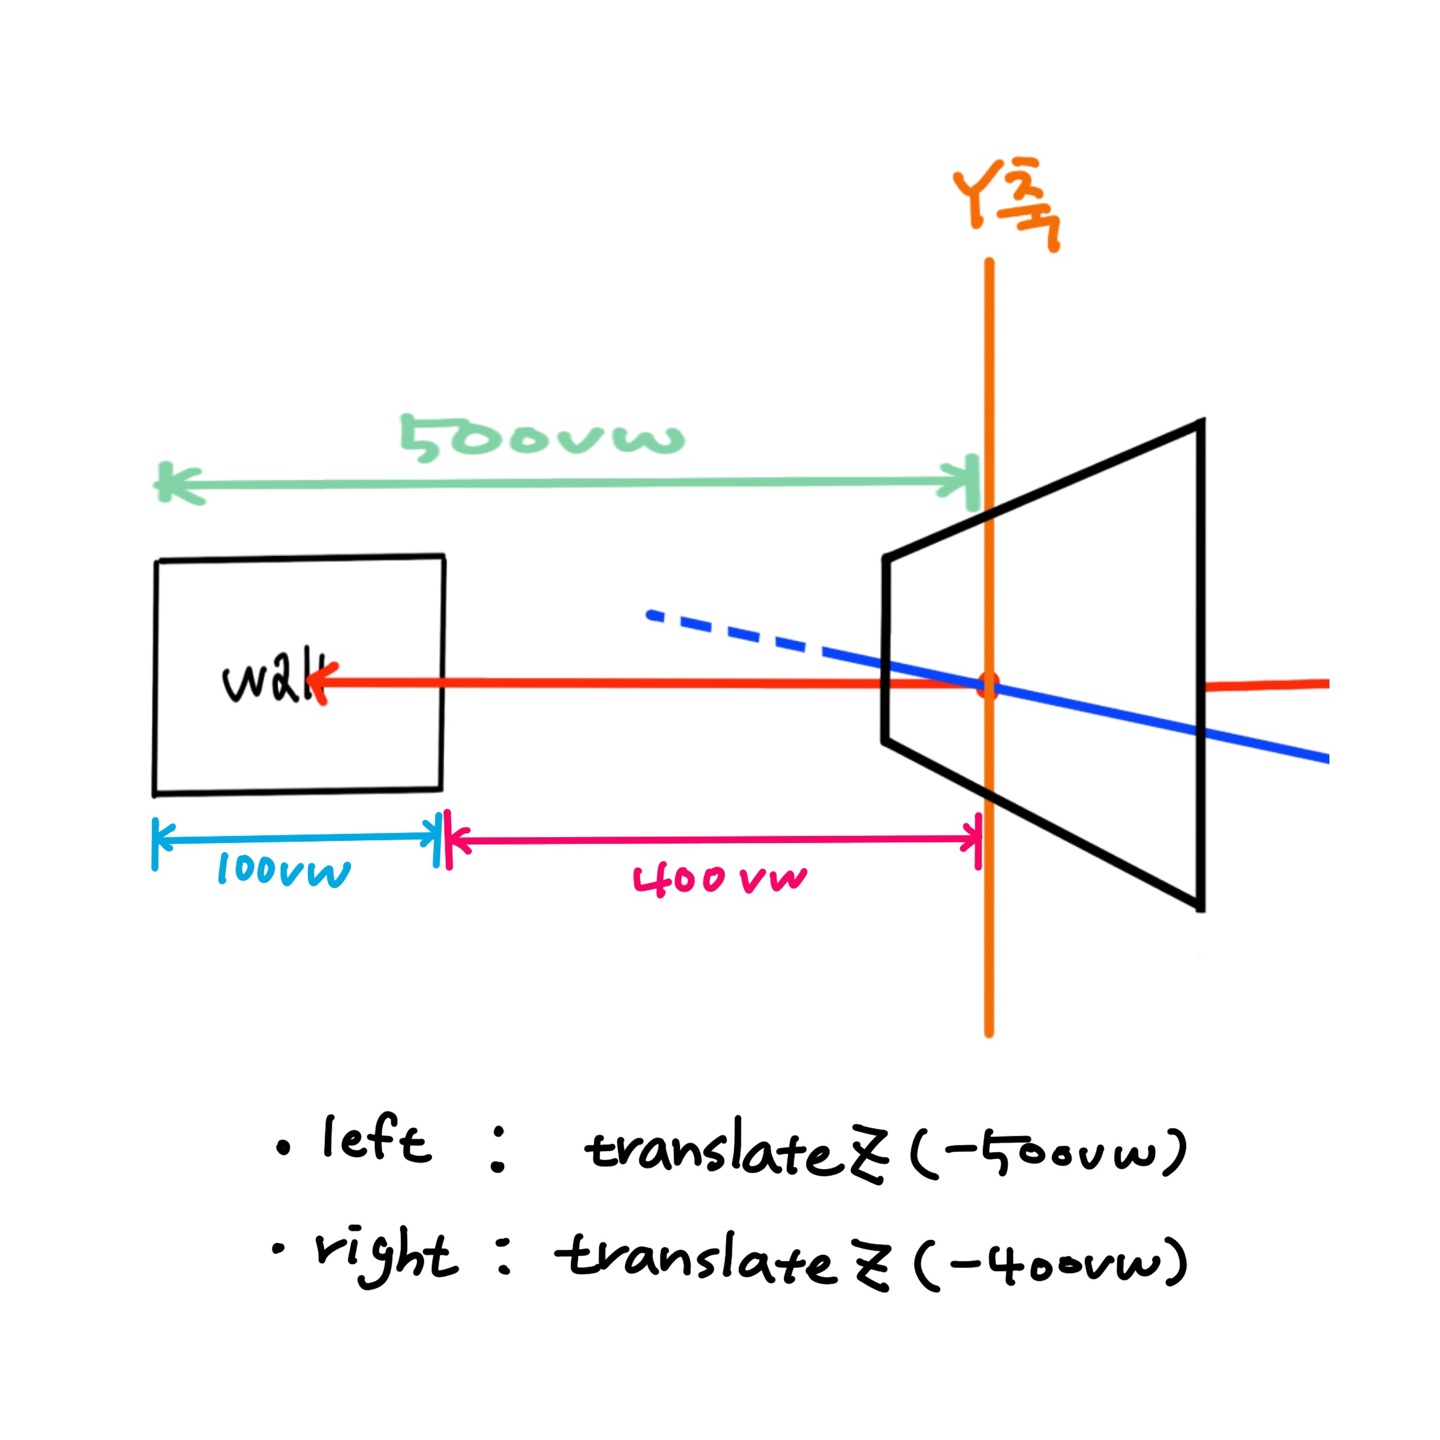 Y축
500vw
wall
100vw
400vw
• left : translateZ (-500vw)
• right : translateZ (-400vw)